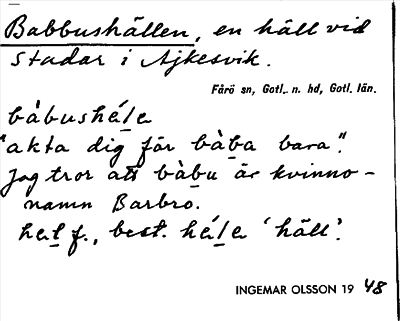 Babbushällen, en häll vid
Stadar i Ajkesvik.
Fårö sn, Gotl. n. hd, Gotl. län.
bàbushéle
"akta dig för bàba bara".
Jag tror att bàbu är kvinno-
namn Barbro.
hel f., best. héle 'häll'.
INGEMAR OLSSON 19 48